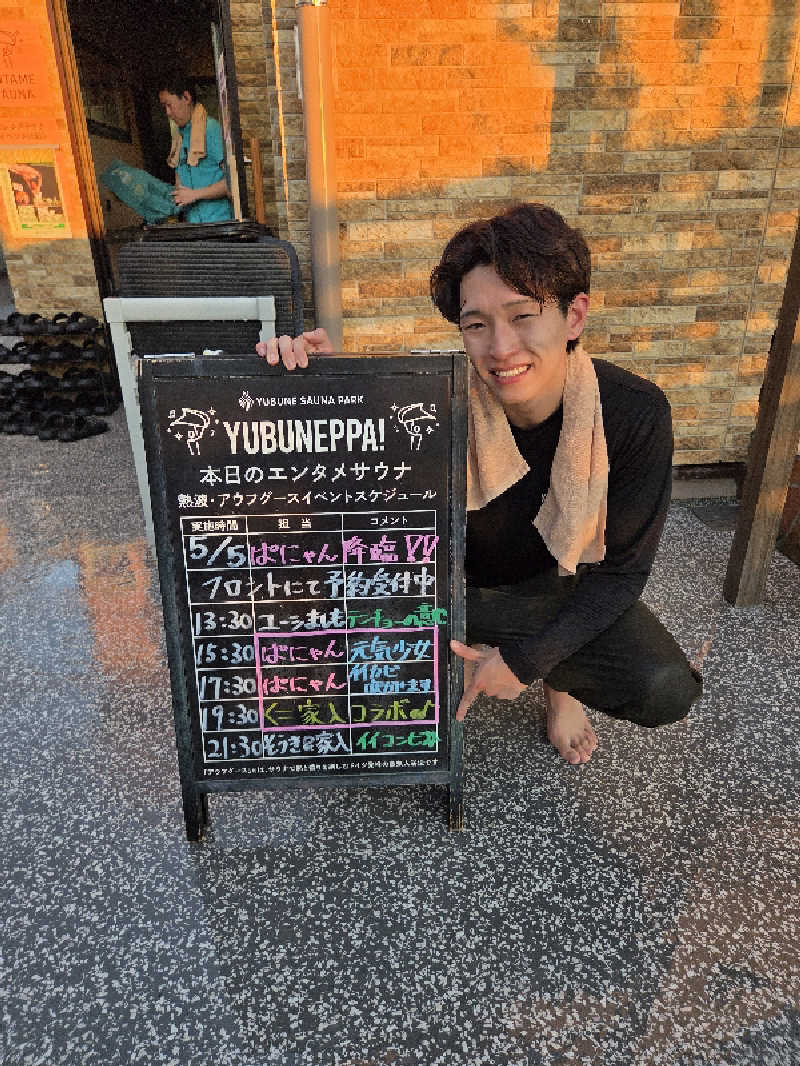 NTAME
AUNA
YUBUNE SAUNA PARK
YUBUNEPPA!
本日のエンタメサウナ
熱波・アウフグースイベントスケジュール
実施時間 担当 コメント
5/5 ぱにゃん 降臨!!
フロントにて予約受付中
13:30 テンチョーの意
15:30 ぱにゃん 元気少女
17:30 ぱにゃん
19:30 く=家入 コラボ♪
21:30 家入 イイコンビ